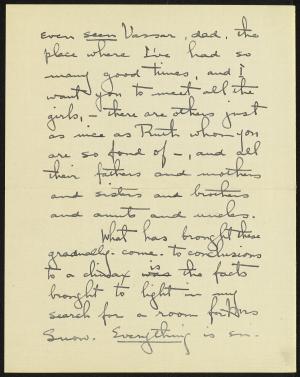 even seen Vassar, dad, the
place where I've had so
many good times, and I
want you to meet all the
girls, – there are others just
as nice as Ruth whom you
are so fond of –, and all
their fathers and mothers
and sisters and brothers
and aunts and uncles.
What has brought these
gradually come to conclusions
to a climax is was the facts
brought to light in my
search for a room for Mrs
Snow. Everything is en-